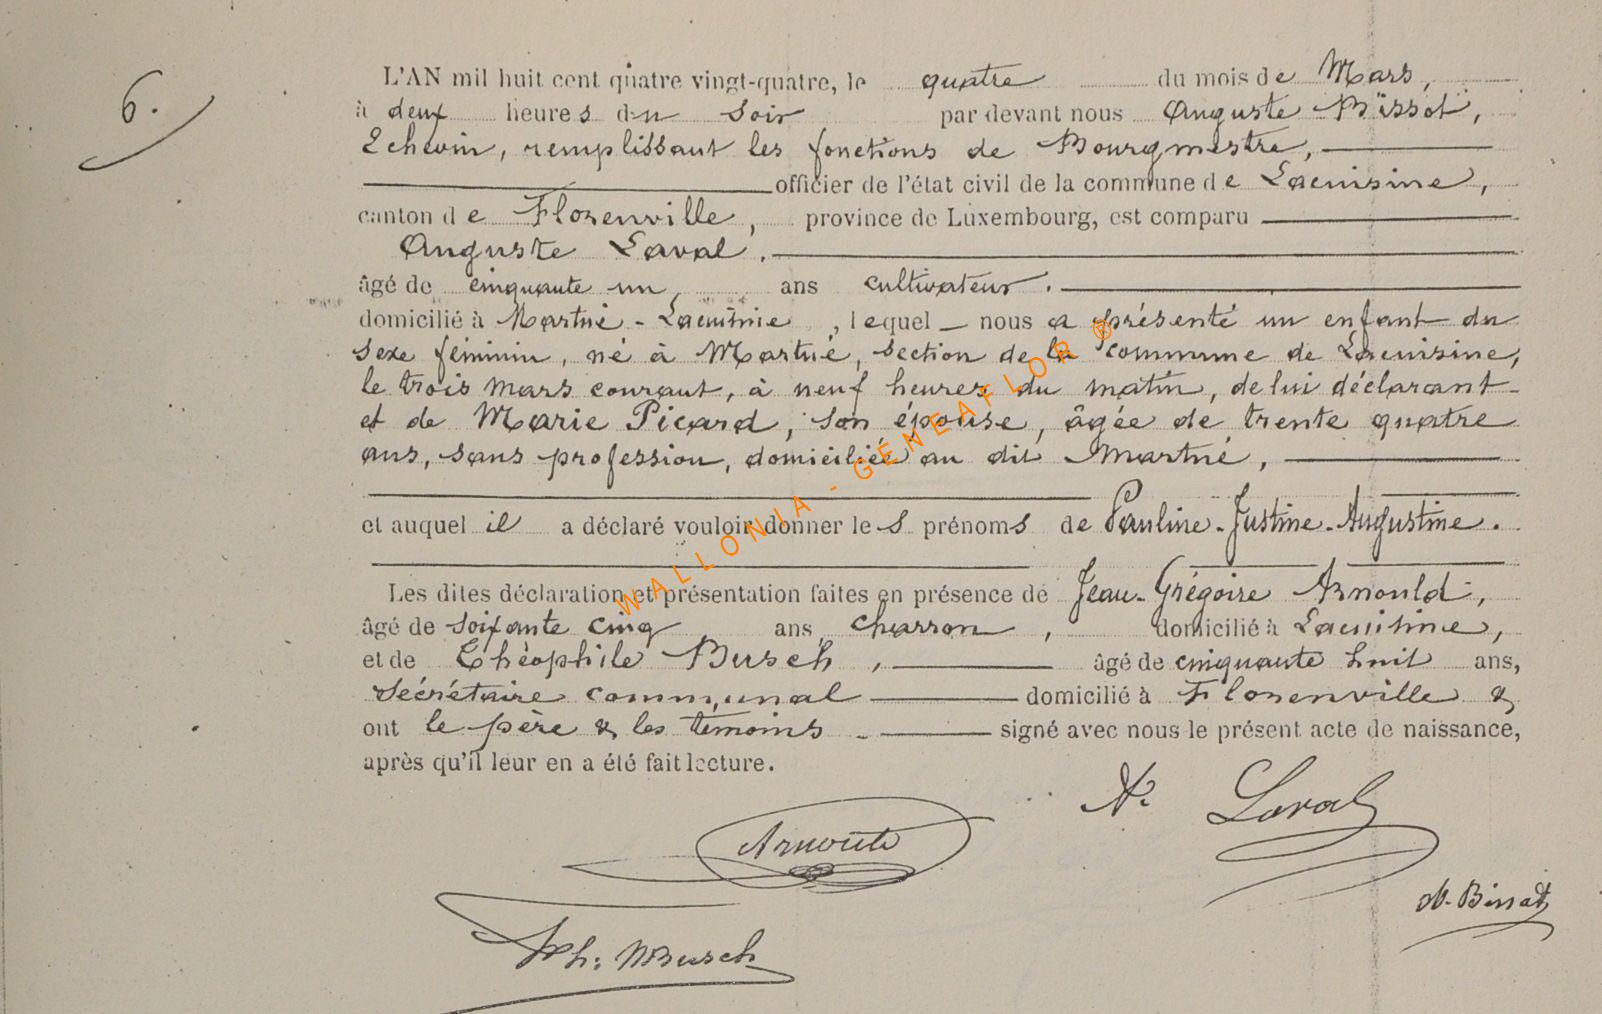 6.
L'AN mil huit cent quatre vingt-quatre, le quatre du mois de Mars,
à deux heures du soir par devant nous Auguste Bissot,
Echevin, remplissant les fonctions de Bourgmestre,
officier de l'état civil de la commune de Lacuisine,
canton de Florenville, province de Luxembourg, est comparu
Auguste Laval.
âgé de cinquante un ans cultivateur.
domicilié à Martué - Lacuisine, lequel nous a présenté un enfant du
sexe féminin, né à Martué, section de la commune de Lacuisine,
le trois Mars courant, à neuf heures du matin, de lui déclarant
et de Marie Picard, son épouse, âgée de trente quatre
ans, sans profession, domiciliée au dit Martué,
et auquel il a déclaré vouloir donner les prénoms de Pauline-Justine-Augustine.
Les dites déclaration et présentation faites en présence de Jean-Grégoire Arnould,
âgé de soixante cinq ans, charron, domicilié à Lacuisine,
et de Théophile Busch, âgé de cinquante huit ans,
sécrétaire communal domicilié à Florenville &
ont le père & les témoins signé avec nous le présent acte de naissance,
après qu'il leur en a été fait lecture.
WALLONIA - GENEAFLOR ®
A. Laval
Arnould
A. Bissot
Th: Busch